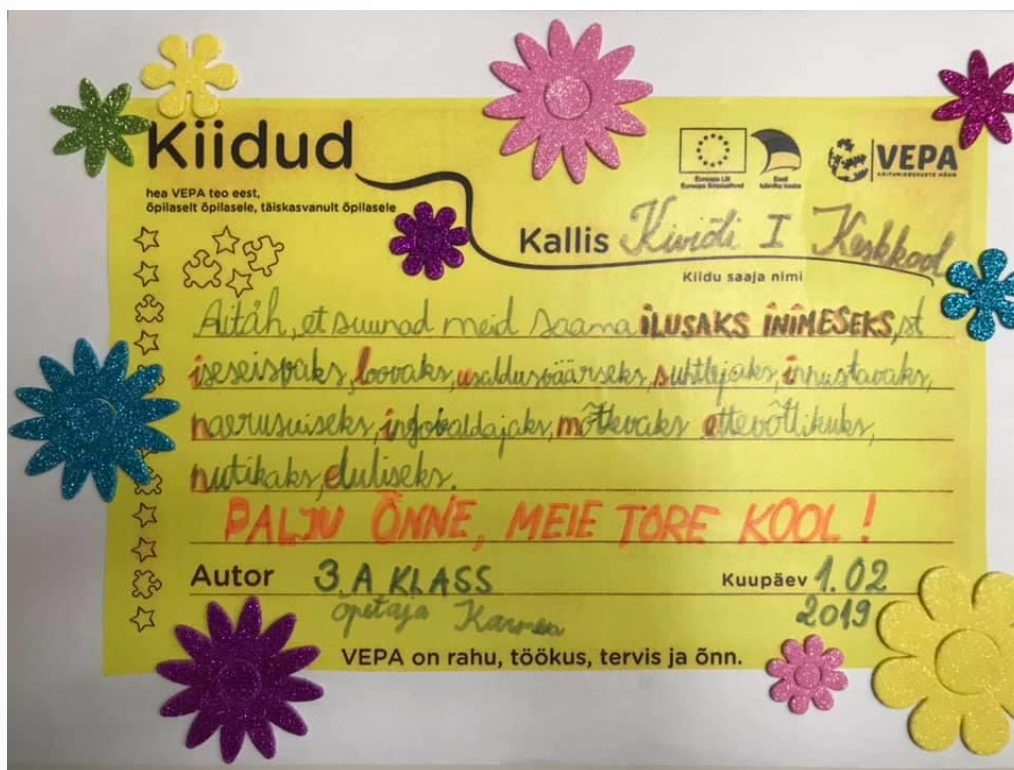 Kiidud
hea VEPA teo eest,
õpilaselt õpilasele, täiskasvanult õpilasele
Euroopa Liit
Euroopa Sotsiaalfond
Eesti
tuleviku heaks
VEPA
KÄITUMISOSKUSTE MÄNG
Kallis Kiviõli I Keskkool
Kiidu saaja nimi
Aitäh, et suunad meid saama ILUSAKS INIMESEKS, st
iseseisvaks, loovaks, usaldusväärseks, suhtlejaks, innustavaks,
naerusuiseks, infovaldajaks, mõtlevaks ettevõtlikuks,
nutikaks, eduliseks.
PALJU ÕNNE, MEIE TORE KOOL!
Autor 3. A KLASS
Kuupäev 1.02
2019
õpetaja
VEPA on rahu, töökus, tervis ja õnn.